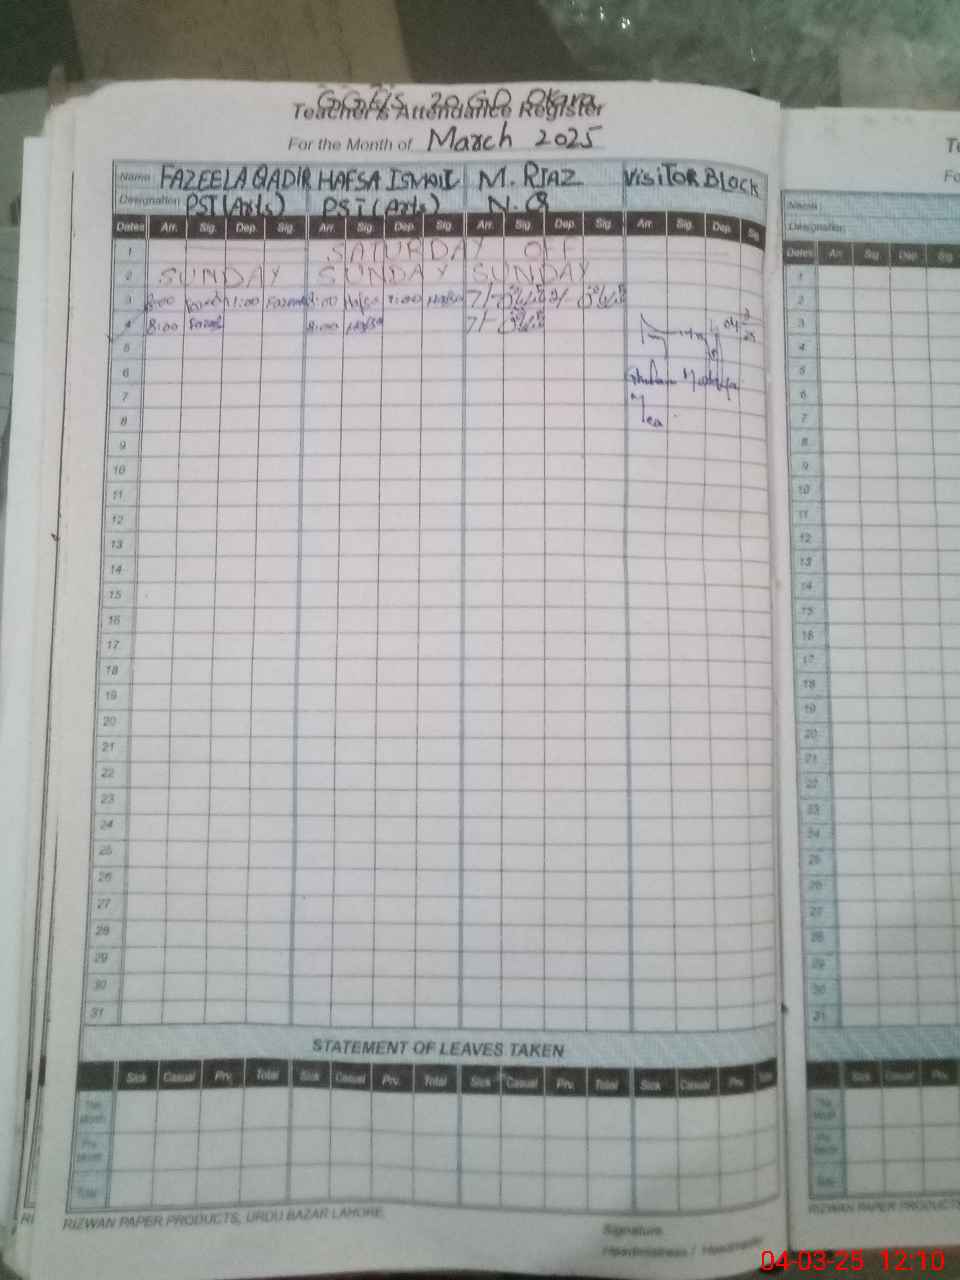 Teacher's Attendance Register
For the Month of March 2025
Name FAZEELA QADIR HAFSA ISMAIL M. RIAZ VISITOR BLOCK
Designation PST (Arts) PST (Arts) N.Q
Dates Arr. Sig. Dep. Sig. Arr. Sig. Dep. Sig. Arr. Sig. Dep. Sig. Arr. Sig. Dep. Sig
1 SATURDAY OFF
2 SUNDAY SUNDAY SUNDAY
3 8:00 1:00 8:00 Hafsa 1:00 Hafsa 7/- 2/-
4 8:00 8:00 Hafsa 7/-
5
6
7
8
9
10
11
12
13
14
15
16
17
18
19
20
21
22
23
24
25
26
27
28
29
30
31
STATEMENT OF LEAVES TAKEN
Sick Casual Prv. Total Sick Casual Prv. Total Sick Casual Prv. Total Sick Casual Prv. Total
This Month
Prv. Month
Total
RIZWAN PAPER PRODUCTS, URDU BAZAR LAHORE.
Signature
Headmistress / Headmaster
Name
Designation
Dates Arr. Sig. Dep. Sig.
1
2
3
4
5
6
7
8
9
10
11
12
13
14
15
16
17
18
19
20
21
22
23
24
25
26
27
28
29
30
31
Sick Casual Prv.
This Month
Prv. Month
Total
RIZWAN PAPER PRODUCTS
04-03-25 12:10